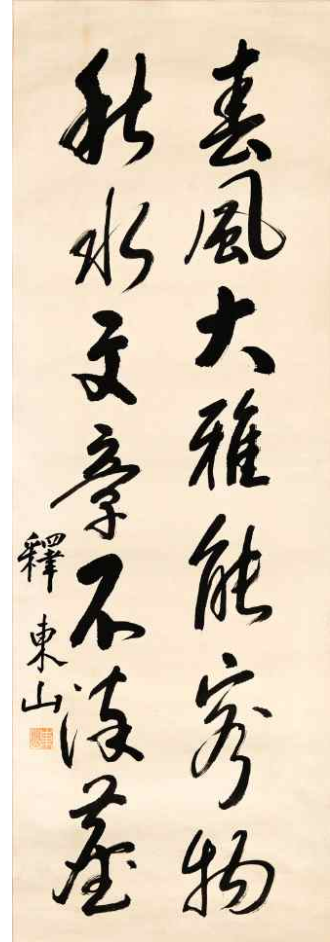 春風大雅能容物
秋水文章不染塵
釋東山